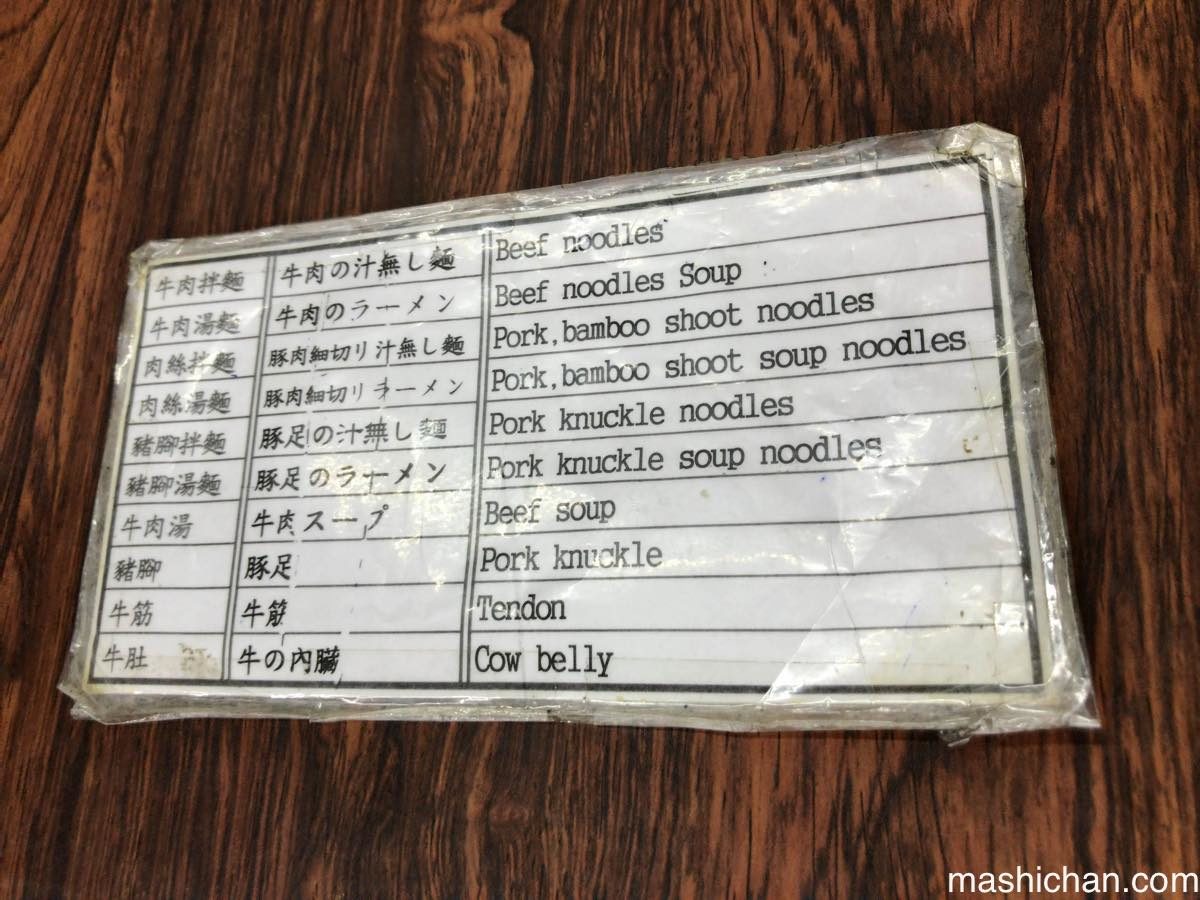 牛肉拌麵 牛肉の汁無し麵 Beef noodles
牛肉湯麵 牛肉のラーメン Beef noodles Soup
肉絲拌麵 豚肉細切り汁無し麵 Pork,bamboo shoot noodles
肉絲湯麵 豚肉細切りラーメン Pork,bamboo shoot soup noodles
豬腳拌麵 豚足の汁無し麵 Pork knuckle noodles
豬腳湯麵 豚足のラーメン Pork knuckle soup noodles
牛肉湯 牛肉スープ Beef soup
豬腳 豚足 Pork knuckle
牛筋 牛筋 Tendon
牛肚 牛の内臓 Cow belly
mashichan.com